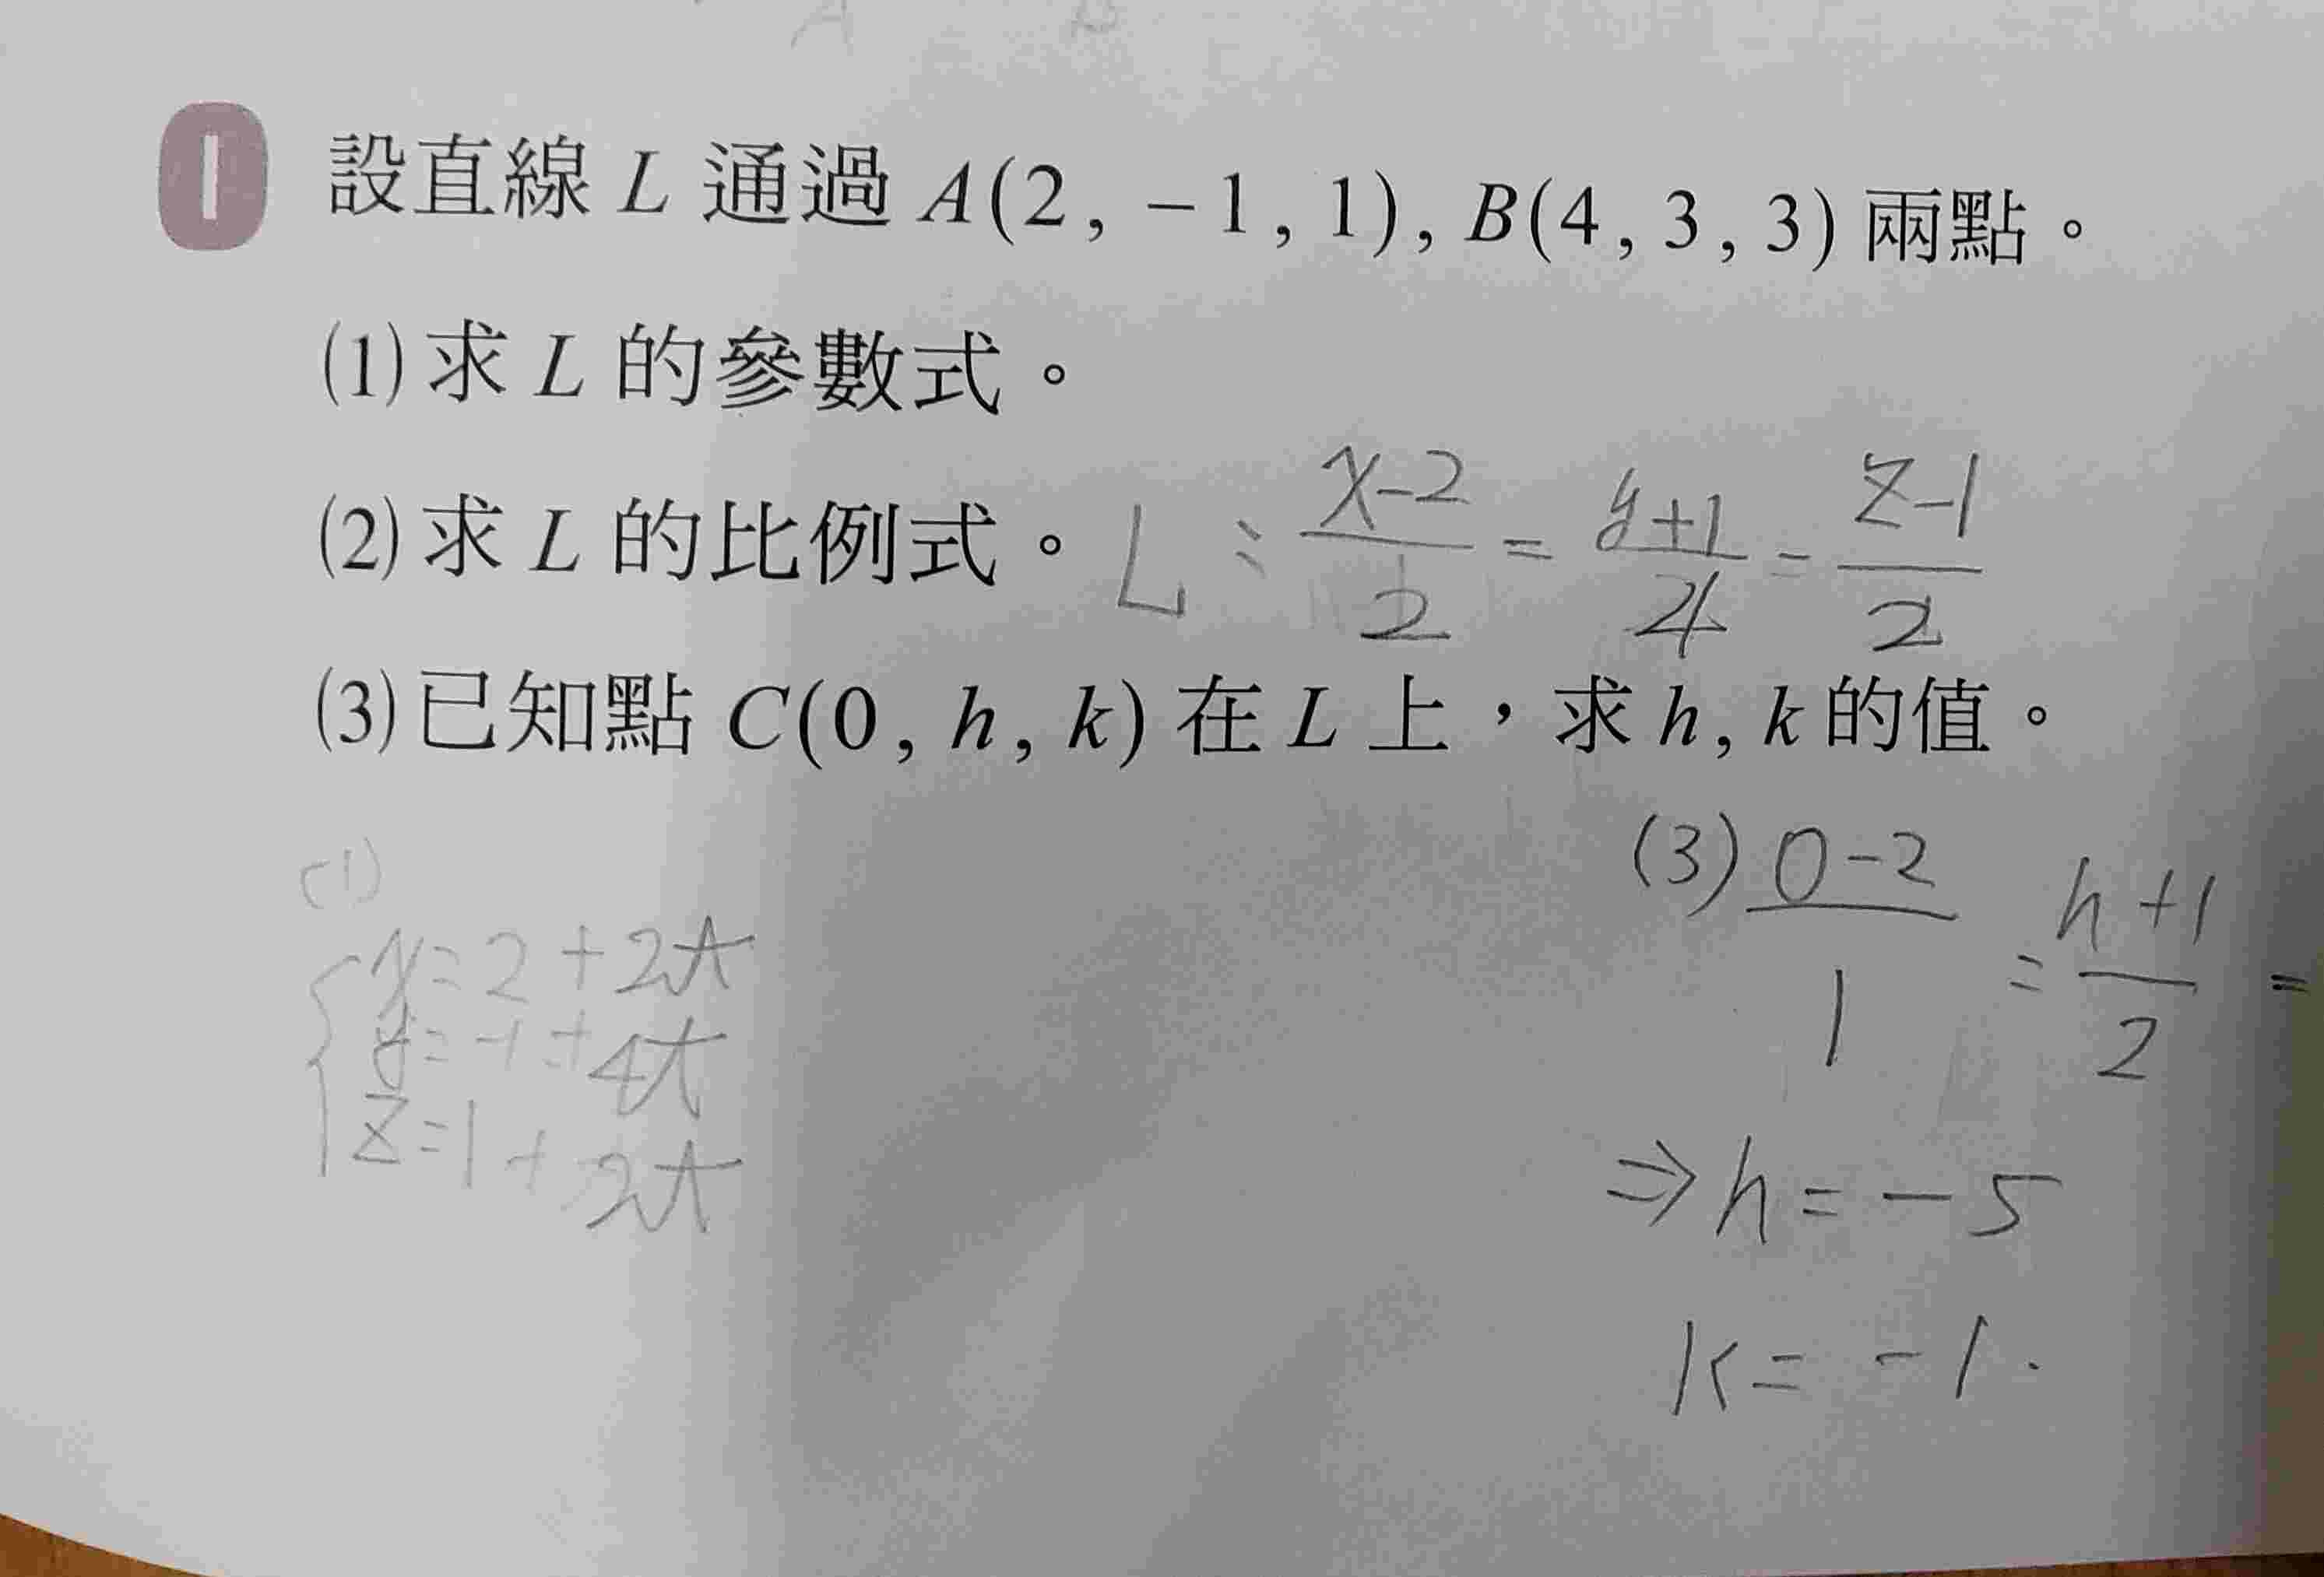 1 設直線 L 通過 A(2, −1, 1), B(4, 3, 3) 兩點。
(1) 求 L 的參數式。
(2) 求 L 的比例式。 L : (x-2)/2 = (y+1)/4 = (z-1)/2
(3) 已知點 C(0, h, k) 在 L 上，求 h, k 的值。
(1)
x=2+2t
y=-1+4t
z=1+2t
(3) (0-2)/1 = (h+1)/2 =
⇒ h = -5
k = -1.